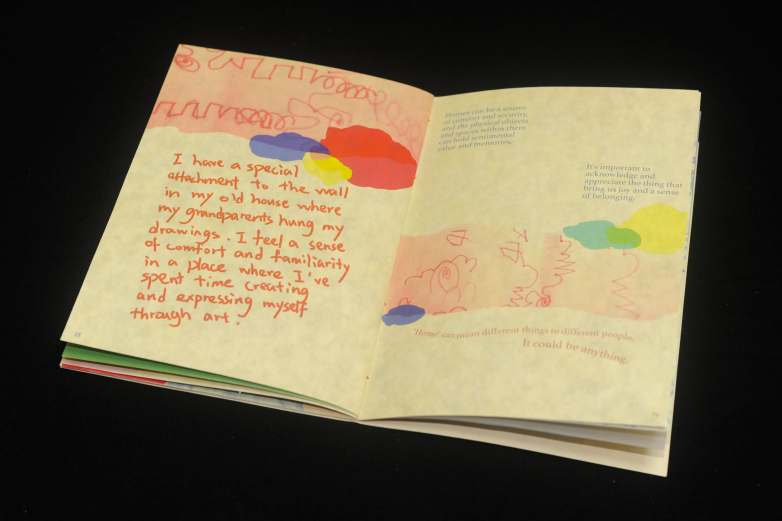 I have a special
attachment to the wall
in my old house where
my grandparents hung my
drawings. I feel a sense
of comfort and familiarity
in a place where I've
spent time creating
and expressing myself
through art.
Homes can be a source
of comfort and security,
and the physical objects
and spaces within them
can hold sentimental
value and memories.
It's important to
acknowledge and
appreciate the thing that
bring us joy and a sense
of belonging.
'Home' can mean different things to different people.
It could be anything.